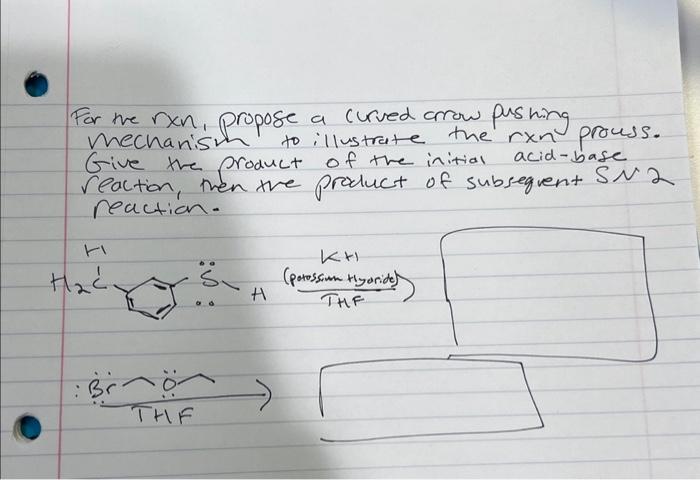 For the rxn, propose a curved arrow pushing
mechanism to illustrate the rxn prouss.
Give the product of the initial acid-base
reaction, then the product of subsequent SN2
reaction.
H
H₂C
S
H
KH
(potassium Hydride)
THF
:Br O
THF